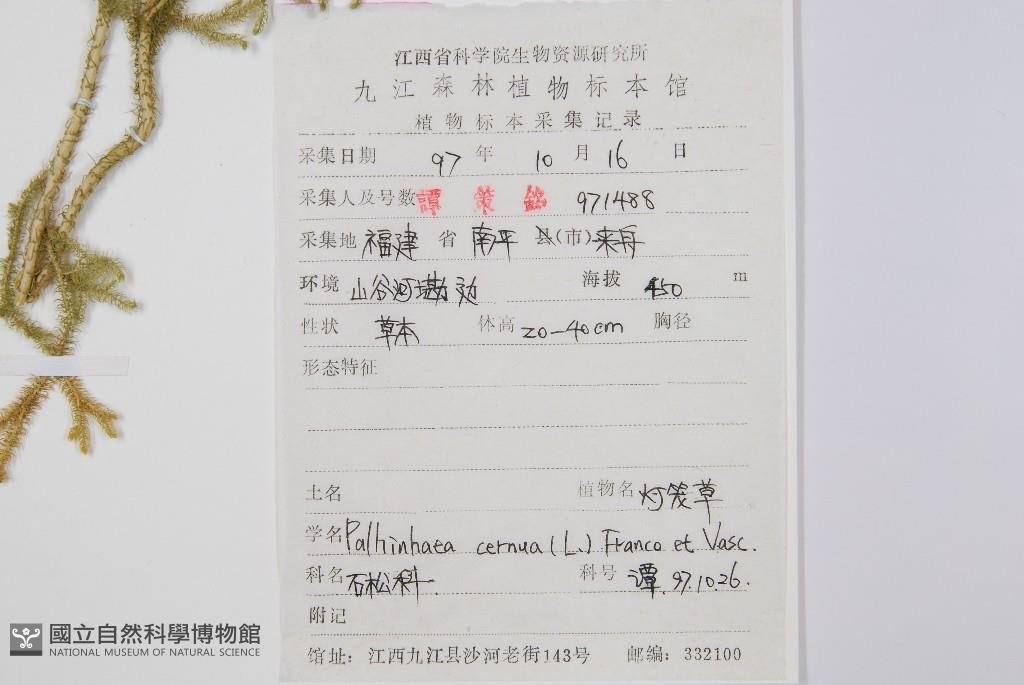 江西省科学院生物资源研究所
九江森林植物标本馆
植物标本采集记录
采集日期 97 年 10 月 16 日
采集人及号数 譚策銘 971488
采集地 福建 省 南平 县(市) 来舟
环境 山谷河 边 海拔 450 m
性状 草本 体高 20-40cm 胸径
形态特征
土名 植物名 灯笼草
学名 Palhinhaea cernua (L.) Franco et Vasc.
科名 石松科 科号 谭. 97.10.26.
附记
馆址: 江西九江县沙河老街143号 邮编: 332100
國立自然科學博物館
NATIONAL MUSEUM OF NATURAL SCIENCE